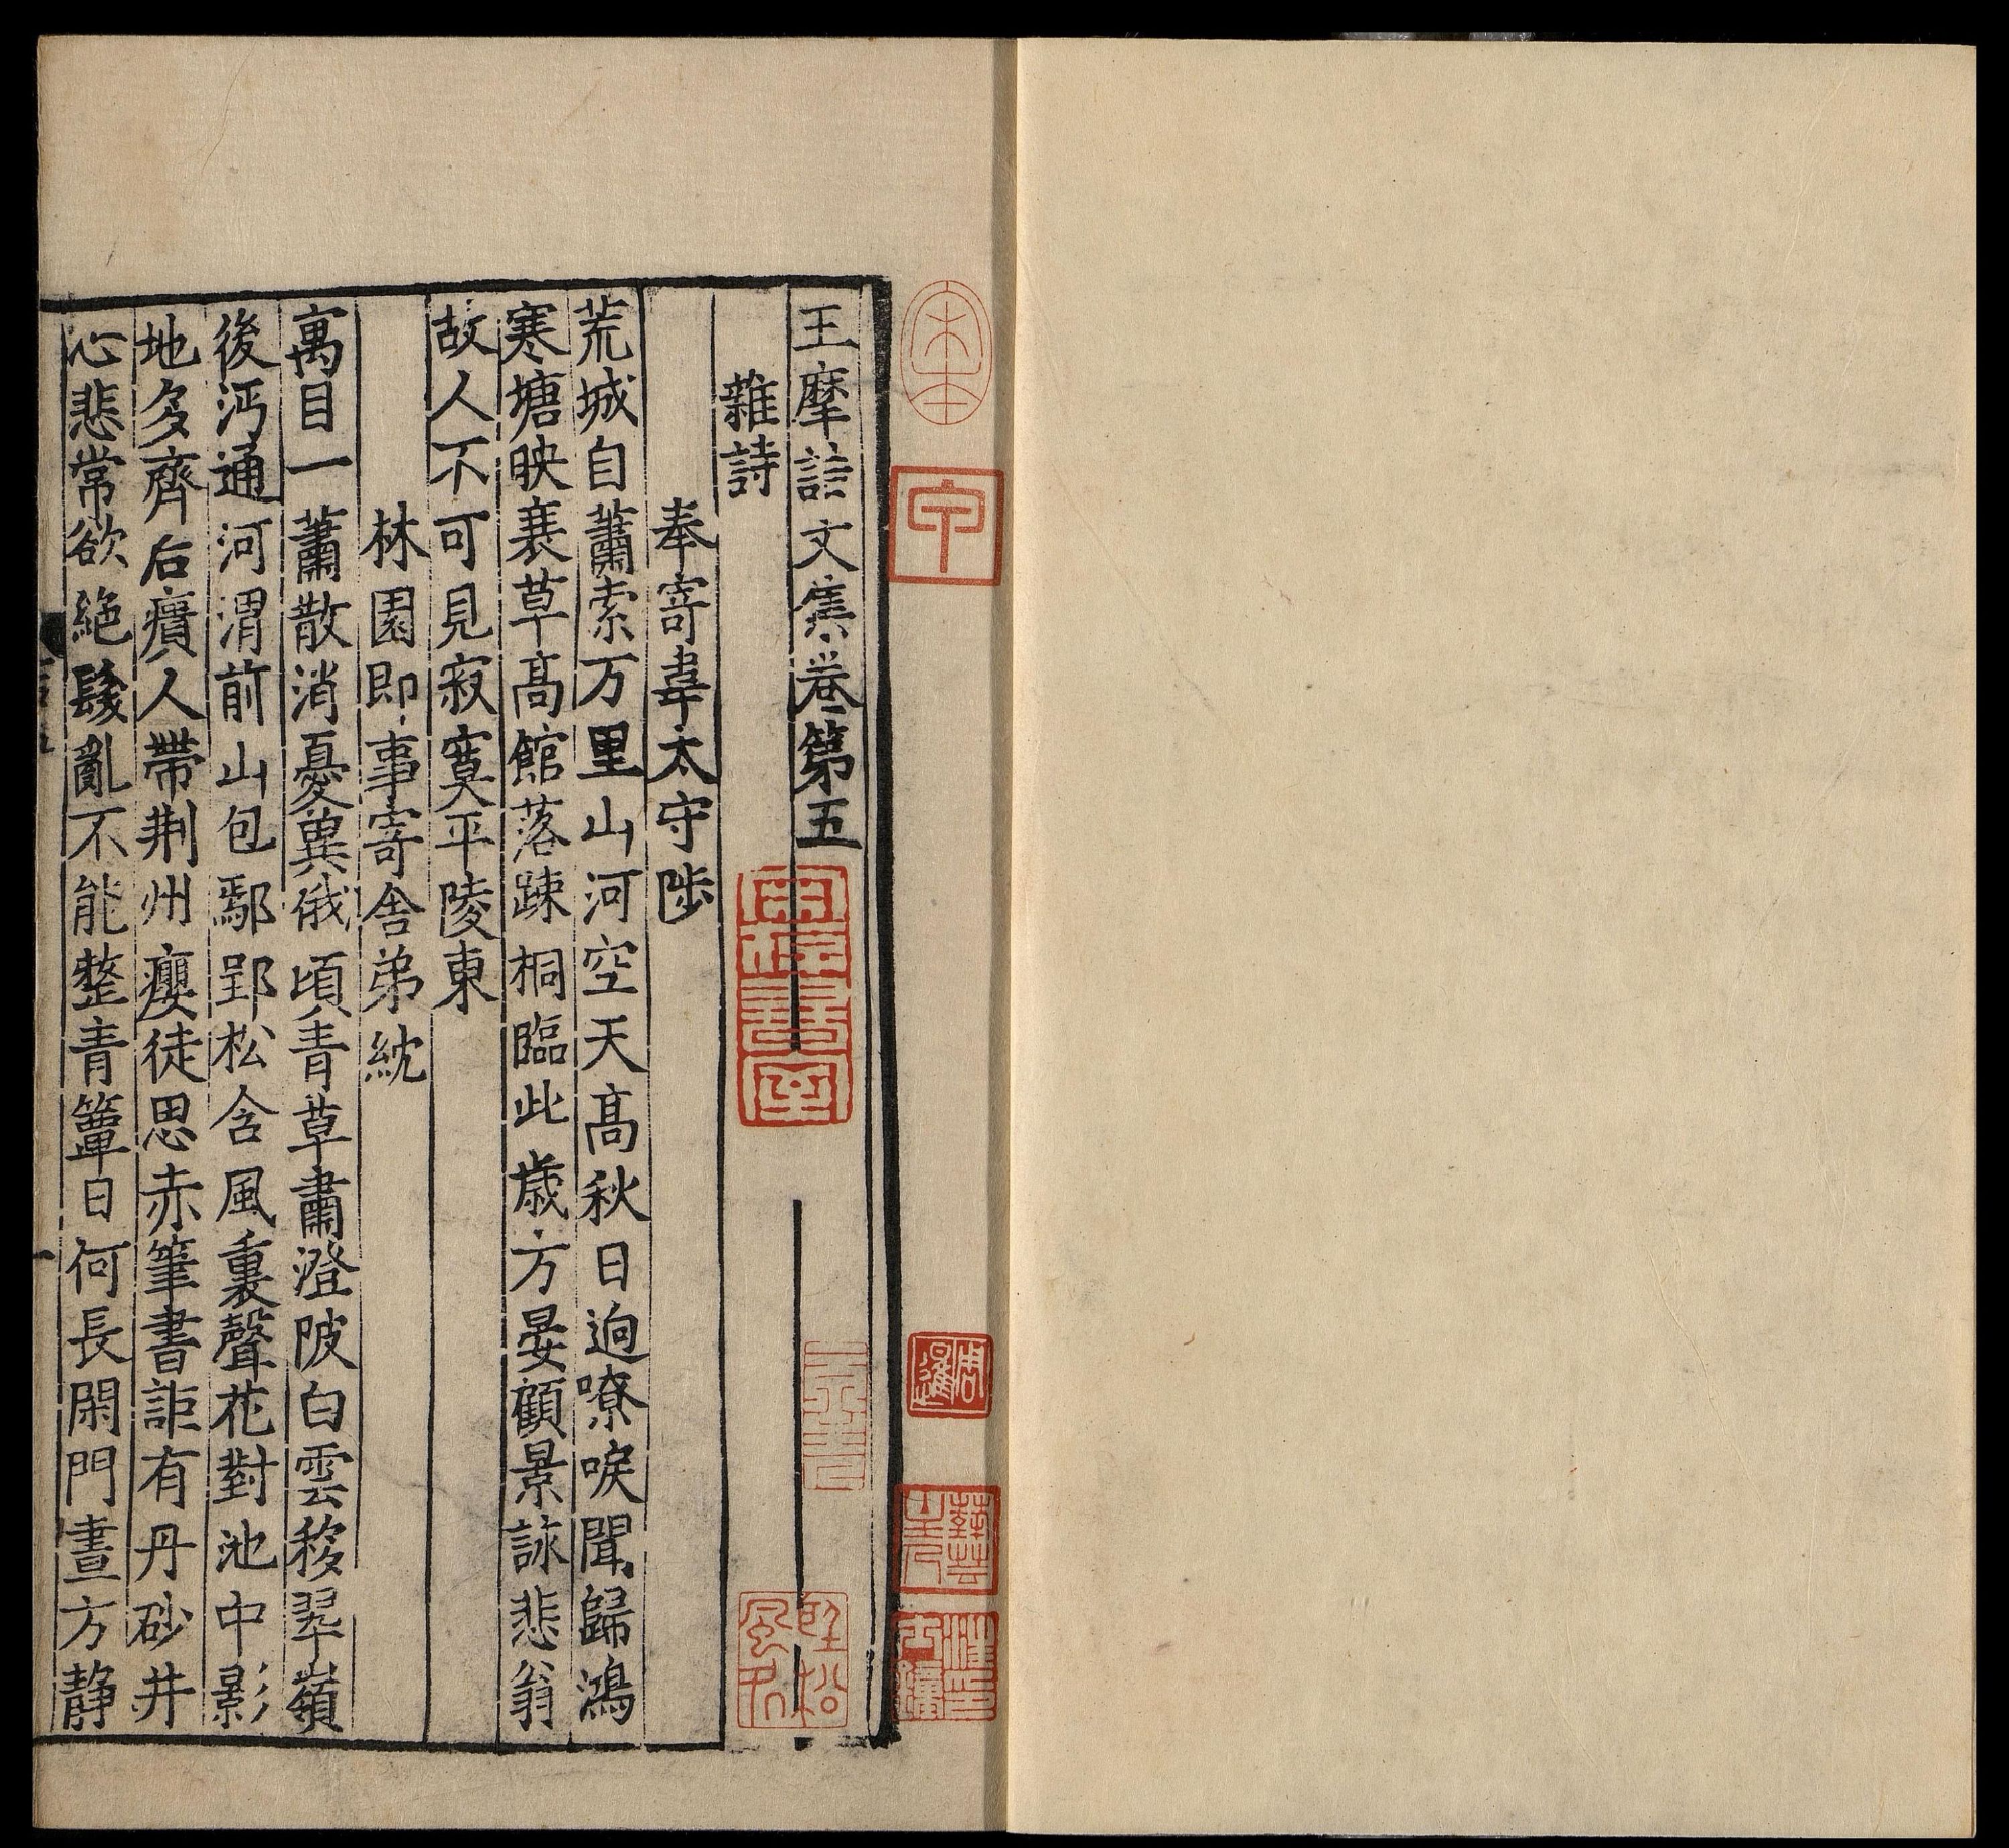 王摩詰文集卷第五
雜詩
奉寄韋太守陟
荒城自蕭索万里山河空天高秋日迥嘹唳聞歸鴻
寒塘映衰草高館落疎桐臨此歲方晏顧景詠悲翁
故人不可見寂寞平陵東
林園即事寄舍弟紞
寓目一蕭散消憂兾俄頃青草肅澄陂白雲移翠嶺
後沔通河渭前山包鄢郢松含風裏聲花對池中影
地多齊后㿔人帶荆州癭徒思赤筆書詎有丹砂井
心悲常欲絶髮亂不能整青簟日何長閑門晝方静
宋本
甲
周暹